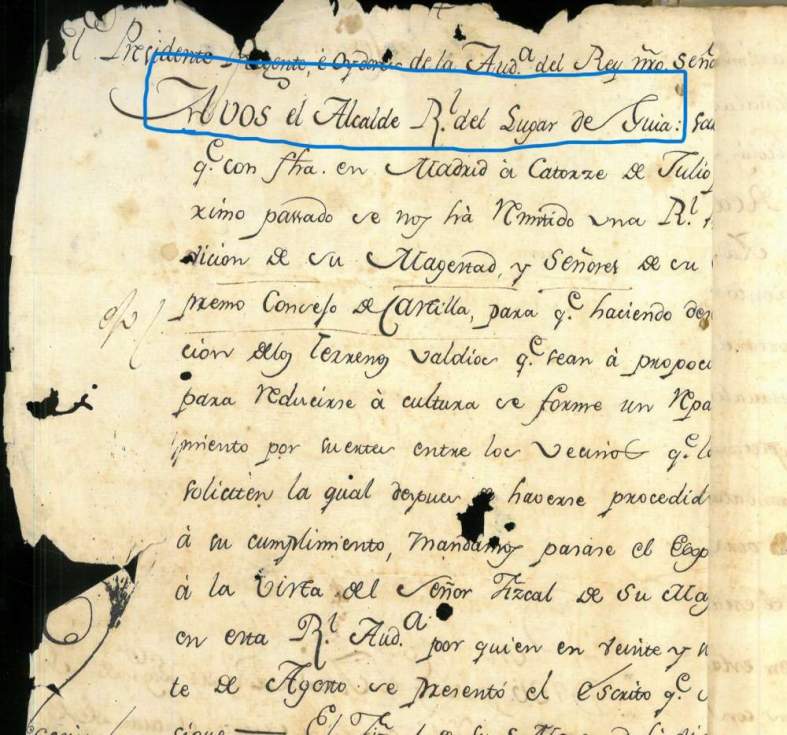 El Presidente Regente, é Oydores de la Aud.ª del Rey ñro. Señ
A vos el Alcalde R.l del Lugar de Guia:
q.e con fha. en Madrid à Catorze de Julio
ximo passado se nos hà Remitido una R.l
vicion de su Magestad, y Señores de su
premo Consejo de Castilla, para q.e haciendo
cion delos terrenos valdios q.e sean à propoci
para Reducirse à cultura se forme un Repa
pmiento por suertes entre los Vecinos q.e lo
soliciten la qual despues de haverse procedid
à su cumplimiento, mandamos passase el Expe
à la Vista del Señor Fizcal de Su Mag
en esta R.l Aud.a por quien en veinte y
te de Agosto se presentó el escrito q.e
sigue